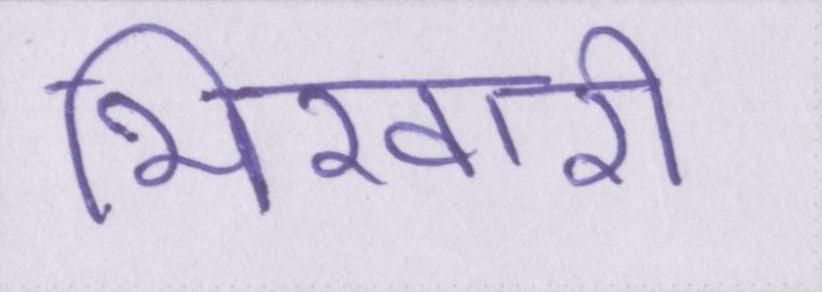 भिखारी